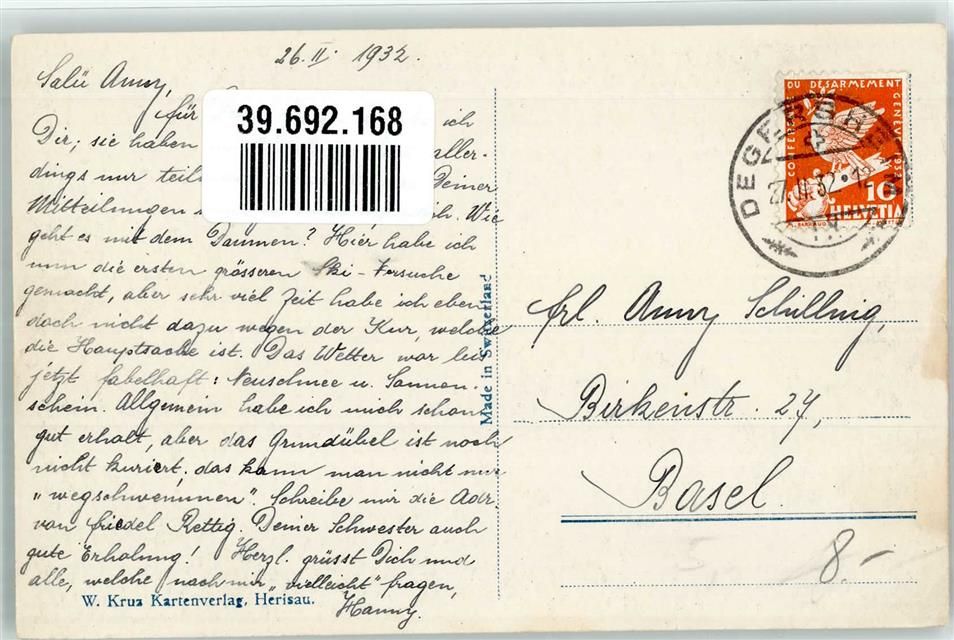 26. II. 1932.
Salü Anny,
für
39.692.168
ich
Dir; sie haben
aller-
dings nur teil
Deiner
Mitteilungen
ih. Wie
geht es mit dem Daumen? Hier habe ich
nun die ersten grösseren Ski-Versuche
gemacht, aber sehr viel Zeit habe ich eben
doch nicht dazu wegen der Kur, welche
die Hauptsache ist. Das Wetter war bis
jetzt fabelhaft: Neuschnee u. Sonnen-
schein. Allgemein habe ich mich schon
gut erholt, aber das Grundübel ist noch
nicht kuriert; das kann man nicht nur
"wegschwemmen". Schreibe mir die Adr.
von Friedel Rettig. Deiner Schwester auch
gute Erholung! Herzl. grüsst Dich und
alle, welche nach mir "vielleicht" fragen,
Hanny.
W. Kruz Kartenverlag, Herisau.
Made in Switzerland
CONFERENCE DU DESARMEMENT GENEVE 1932
10
HELVETIA
DEGERSHEIM
27. II. 32 - 12
Frl. Anny Schillnig,
Birkenstr. 27,
Basel.
8.-